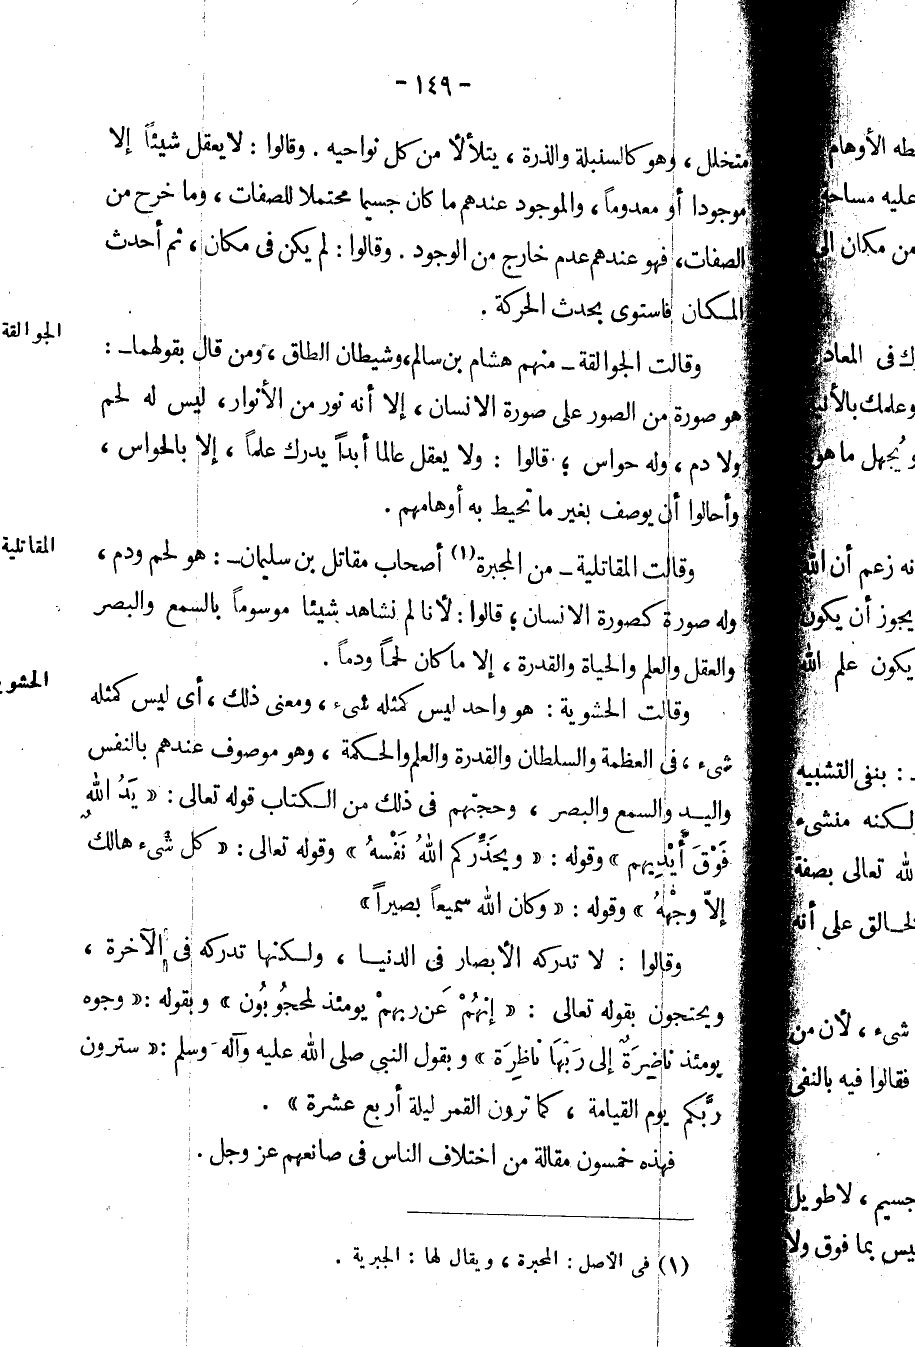 - ١٤٩ -
متخلل ، وهو كالسنبلة والذرة ، يتلألأ من كل نواحيه . وقالوا : لا يعقل شيئاً إلا
موجودا أو معدوماً ، والموجود عندهم ما كان جسيما محتملا للصفات ، وما خرج من
الصفات ، فهو عندهم عدم خارج من الوجود . وقالوا : لم يكن فى مكان ، ثم أحدث
المكان فاستوى بحدث الحركة .
الجوالقة
وقالت الجوالقة ــ منهم هشام بن سالم ، وشيطان الطاق ، ومن قال بقولهما ــ :
هو صورة من الصور على صورة الانسان ، إلا أنه نور من الأنوار ، ليس له لحم
ولا دم ، وله حواس ؛ قالوا : ولا يعقل عالما أبداً يدرك علماً ، إلا بالحواس ،
وأحالوا أن يوصف بغير ما تحيط به أوهامهم .
المقاتلية
وقالت المقاتلية ــ من المجبرة (١) أصحاب مقاتل بن سليمان ــ : هو لحم ودم ،
وله صورة كصورة الانسان ؛ قالوا : لأنا لم نشاهد شيئا موسوماً بالسمع والبصر
والعقل والعلم والحياة والقدرة ، إلا ما كان لحماً ودماً .
الحشو
وقالت الحشوية : هو واحد ليس كمثله شىء ، ومعنى ذلك ، أى ليس كمثله
شىء ، فى العظمة والسلطان والقدرة والعلم والحكمة ، وهو موصوف عندهم بالنفس
واليـد والسمع والبصر ، وحجتهم فى ذلك من الكتاب قوله تعالى : « يَدُ اللهِ
فَوْقَ أَيْدِيهم » وقوله : « ويحَذِّركم اللهُ نَفْسهُ » وقوله تعالى : « كل شىء هالكٌ
إلاّ وجْههُ » وقوله : « وكان الله سميعاً بصيراً »
وقالوا : لا تدركه الأبصار فى الدنيـا ، ولـكنها تدركه فى الآخرة ،
ويحتجون بقوله تعالى : « إنهُمْ عَن ربهمْ يومئذ لمحجُوبُون » و بقوله : « وجوه
يومئذ ناضِرَةٌ إلى رَبّهَا نَاظِرَة » و بقول النبي صلى الله عليه وآله وسلم : « سترون
ربَّكم يوم القيامة ، كما ترون القمر ليلة أربع عشرة » .
فهذه خمسون مقالة من اختلاف الناس فى صانعهم عز وجل .
(١) فى الأصل : المحبرة ، ويقال لها : الجبرية .
طه الأوهام
عليه مساحة
من مكان إلى
ك فى المعاد
وعلمك
و يُجهل ما هو
نه زعم أن الله
يجوز أن يكون
يكون علم الله
: بنفى التشبيه
لـكنه منشىء
لله تعالى بصفة
لخـالق على أنه
شىء ، لأن من
فقالوا فيه بالنفى
جسيم ، لا طويل
ليس بما فوق ولا